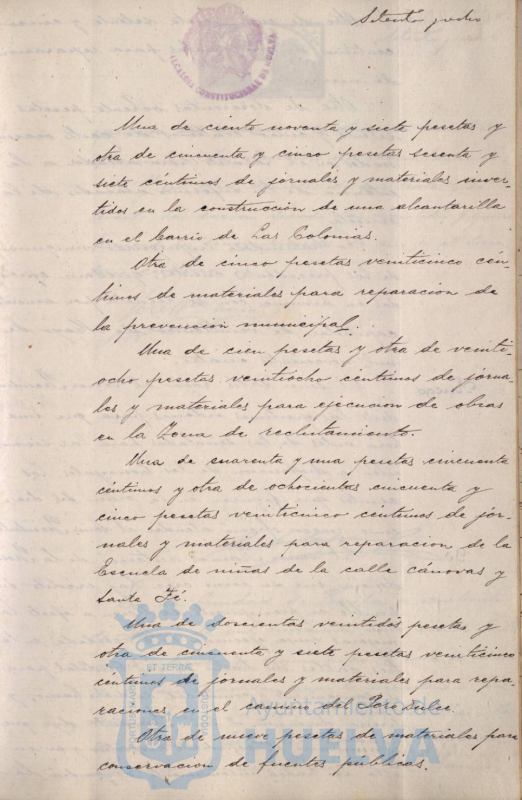 Setenta y ocho
ALCALDIA CONSTITUCIONAL DE HUELVA
Una de ciento noventa y siete pesetas y
otra de cincuenta y cinco pesetas sesenta y
siete céntimos de jornales y materiales inver-
tidos en la construcción de una alcantarilla
en el barrio de Las Colonias.
Otra de cinco pesetas veinticinco cén-
timos de materiales para reparacion de
la prevencion municipal.
Una de cien pesetas y otra de veinti-
ocho pesetas veintiocho céntimos de jorna-
les y materiales para ejecucion de obras
en la Zona de reclutamiento.
Una de cuarenta y una pesetas cincuenta
céntimos y otra de ochocientas cincuenta y
cinco pesetas veinticinco céntimos de jor-
nales y materiales para reparacion de la
Escuela de niñas de la calle Cánovas y
Santa Fé.
Una de doscientas veintidos pesetas y
otra de cincuenta y siete pesetas veinticinco
céntimos de jornales y materiales para repa-
raciones en el camino del Pozo dulce.
Otra de nueve pesetas de materiales para
conservacion de fuentes públicas.
PORTUS MARIS ET TERRAE CUSTODIA
Ayuntamiento de
HUELVA